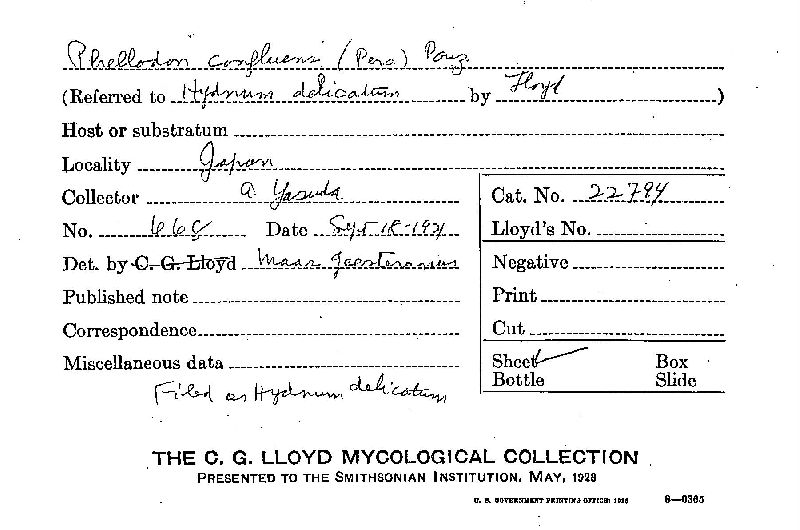 Phellodon confluens (Pers) Pouz
(Referred to Hydnum delicatum by Lloyd)
Host or substratum
Locality Japan
Collector A Yasuda
No. 668 Date Sept
Det. by C. G. Lloyd Maas Geesteranus
Published note
Correspondence
Miscellaneous data
Filed as Hydnum delicatum
Cat. No. 22794
Lloyd's No.
Negative
Print
Cut
Sheet Box
Bottle Slide
THE C. G. LLOYD MYCOLOGICAL COLLECTION
PRESENTED TO THE SMITHSONIAN INSTITUTION, MAY, 1928
U. S. GOVERNMENT PRINTING OFFICE: 1928 6—0365